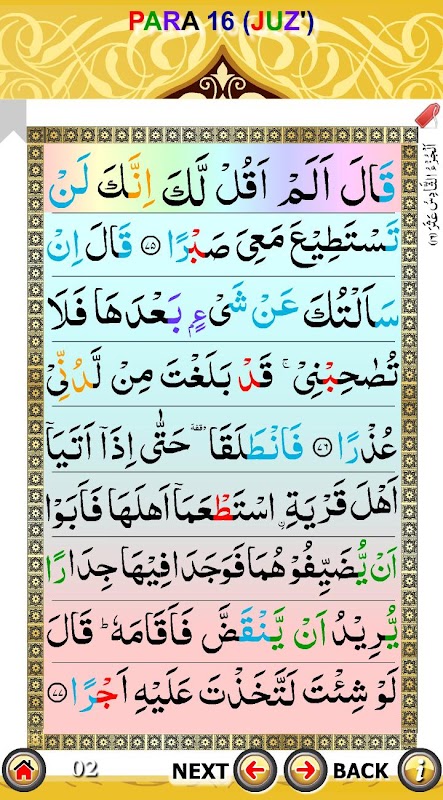 PARA 16 (JUZ')
اَلْجُزْءُ السَّادِسُ عَشَرَ (١٦)
قَالَ اَلَمْ اَقُلْ لَّكَ اِنَّكَ لَنْ
تَسْتَطِيْعَ مَعِيَ صَبْرًا ﴿۷۵﴾ قَالَ اِنْ
سَاَلْتُكَ عَنْ شَيْءٍۭ بَعْدَهَا فَلَا
تُصٰحِبْنِيْ ۚ قَدْ بَلَغْتَ مِنْ لَّدُنِّيْ
عُذْرًا ﴿۷۶﴾ فَانْطَلَقَا ٝ حَتّٰۤى اِذَاۤ اَتَيَاۤ
اَهْلَ قَرْيَةِ ۟اسْتَطْعَمَاۤ اَهْلَهَا فَاَبَوْا
اَنْ يُّضَيِّفُوْهُمَا فَوَجَدَا فِيْهَا جِدَارًا
يُّرِيْدُ اَنْ يَّنْقَضَّ فَاَقَامَهٗ ؕ قَالَ
لَوْ شِئْتَ لَتَّخَذْتَ عَلَيْهِ اَجْرًا ﴿۷۷﴾
02 NEXT BACK i